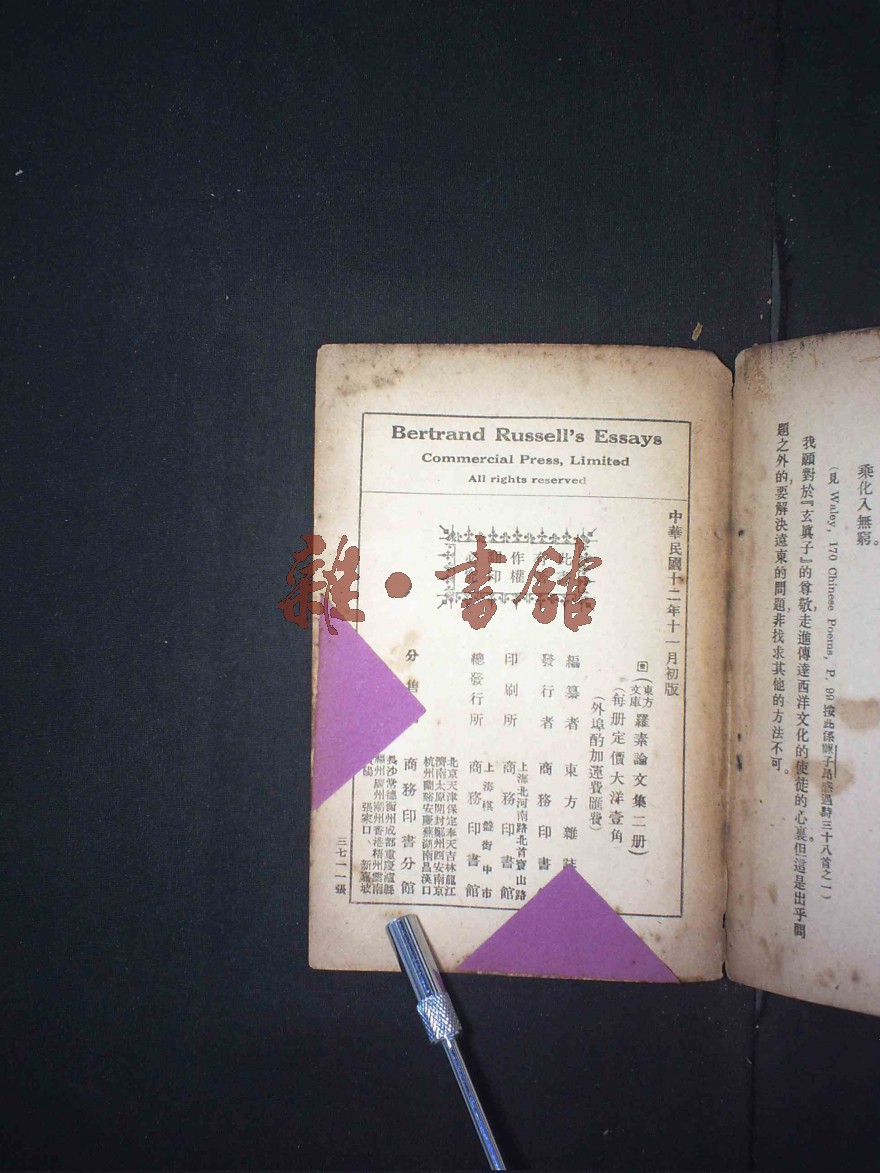 乘化入無窮。
(見 Waley, 170 Chinese Poems, P. 99 按此係陳子昂感遇詩三十八首之一)
我願對於『玄眞子』的尊敬,走進傳達西洋文化的使徒的心裏但這是出乎問
題之外的,要解決遠東的問題,非找求其他的方法不可。
Bertrand Russell's Essays
Commercial Press, Limited
All rights reserved
中華民國十二年十一月初版
(東方文庫)羅素論文集二册)
(每册定價大洋壹角
(外埠酌加運費匯費)
作權
編纂者 東方雜誌
發行者 商務印書
印刷所 上海北河南路北首寶山路 商務印書館
總發行所 上海棋盤街中市 商務印書館
分售
北京天津保定奉天吉林龍江
濟南太原開封鄭州西安南京
杭州蘭谿安慶蕪湖南昌漢口
商務印書分館
長沙常德衡州成都重慶瀘縣
福州廣州潮州香港梧州雲南
張家口 新嘉坡
三七一一張
雜·書館